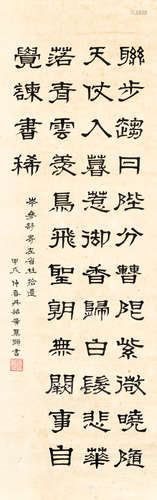 聯步趨丹陛分曹限紫微曉隨
天仗入暮惹御香歸白髮悲華
落青雲羨鳥飛聖朝無闕事自
覺諫書稀
岑參詩寄左省杜拾遺
甲戌仲春書